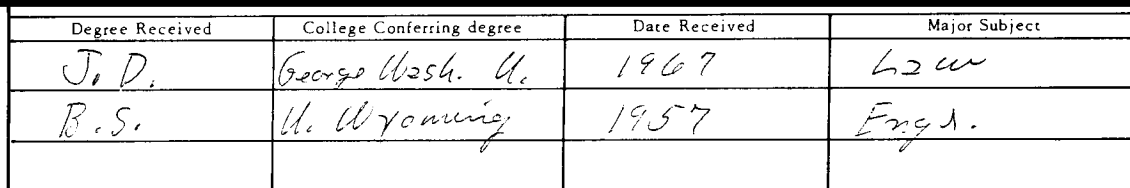 Degree Received College Conferring degree Date Received Major Subject
J. D. George Wash. U. 1967 Law
B.S. U. Wyoming 1957 Engr.